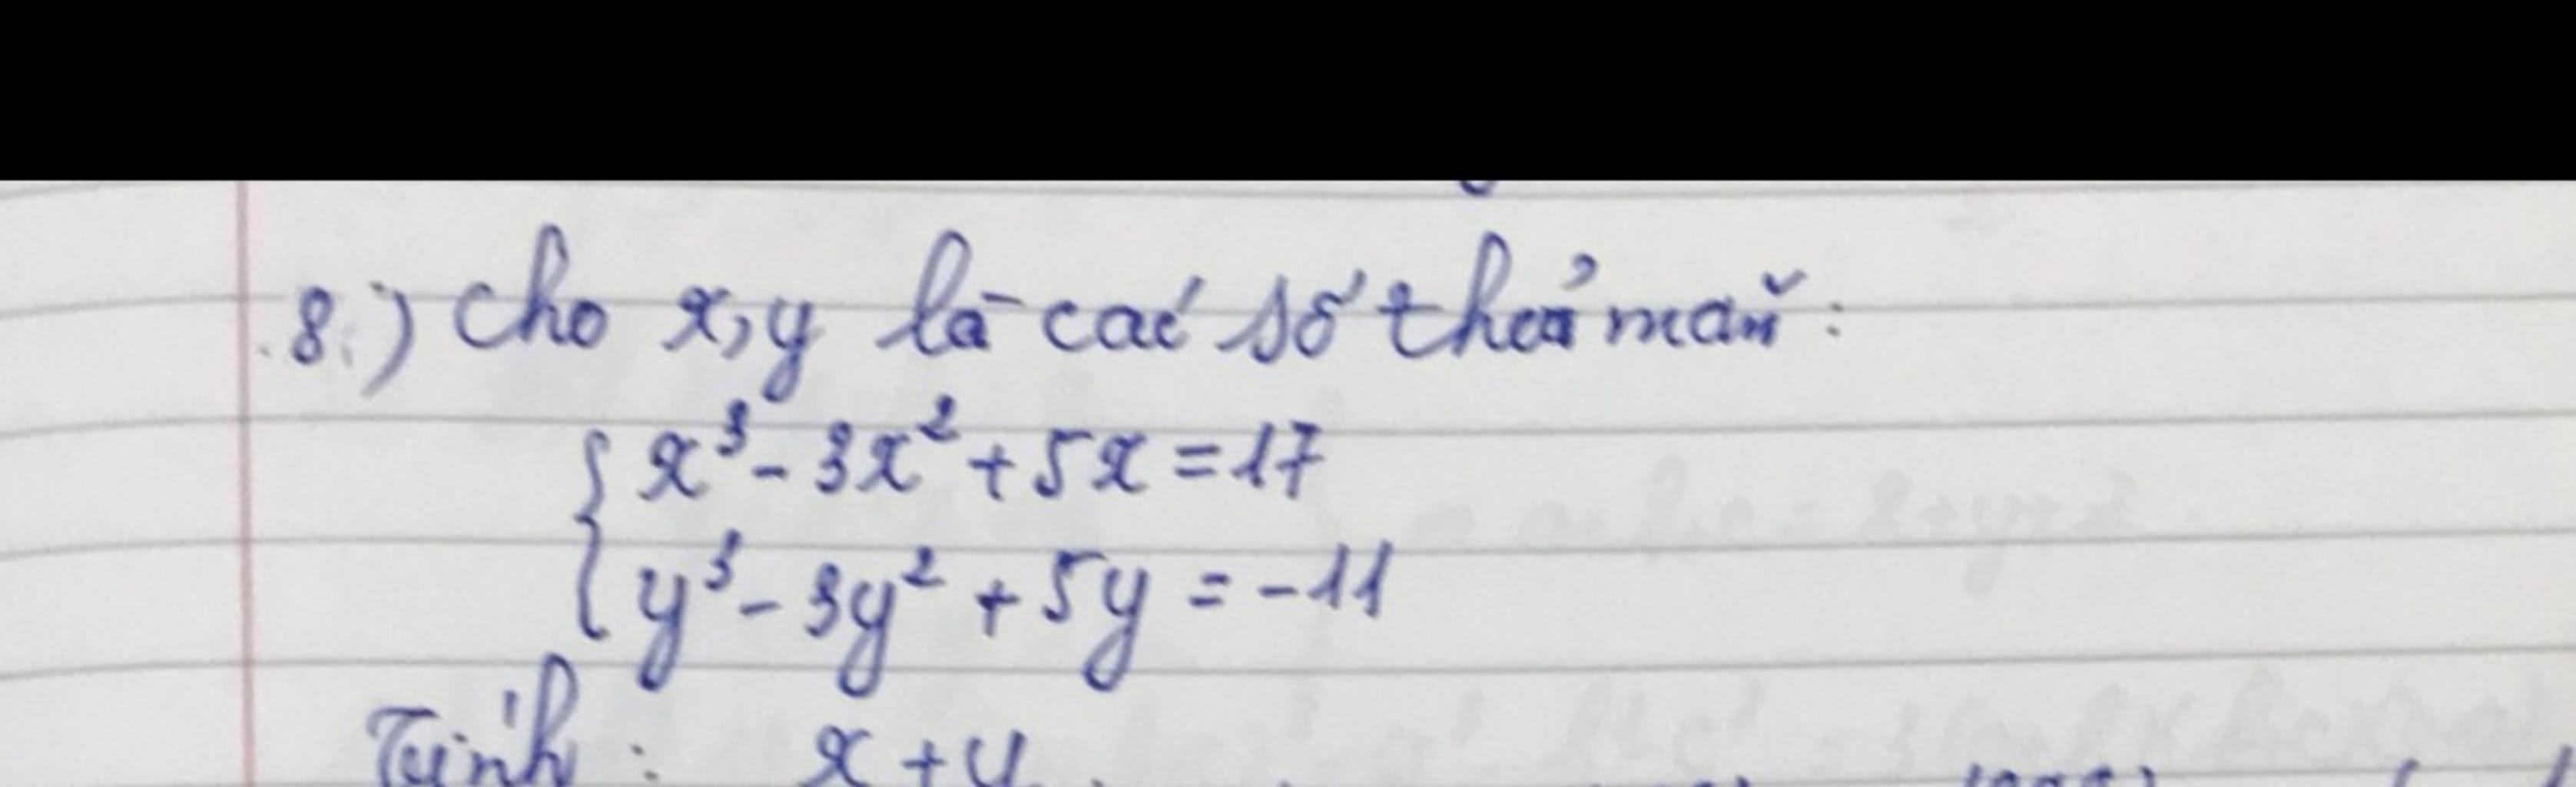 8.) Cho x,y là các số thoả mãn:
x³ - 3x² + 5x = 17
y³ - 3y² + 5y = -11
Tính: x + y